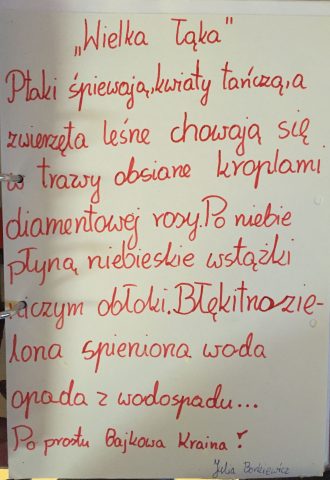 „Wielka Łąka"
Ptaki śpiewają, kwiaty tańczą, a
zwierzęta leśne chowają się
w trawy obsiane kroplami
diamentowej rosy. Po niebie
płyną niebieskie wstążki
raczym obłoki. Błękitnozie-
lona spieniona woda
opada z wodospadu...
Po prostu Bajkowa Kraina!
Julia